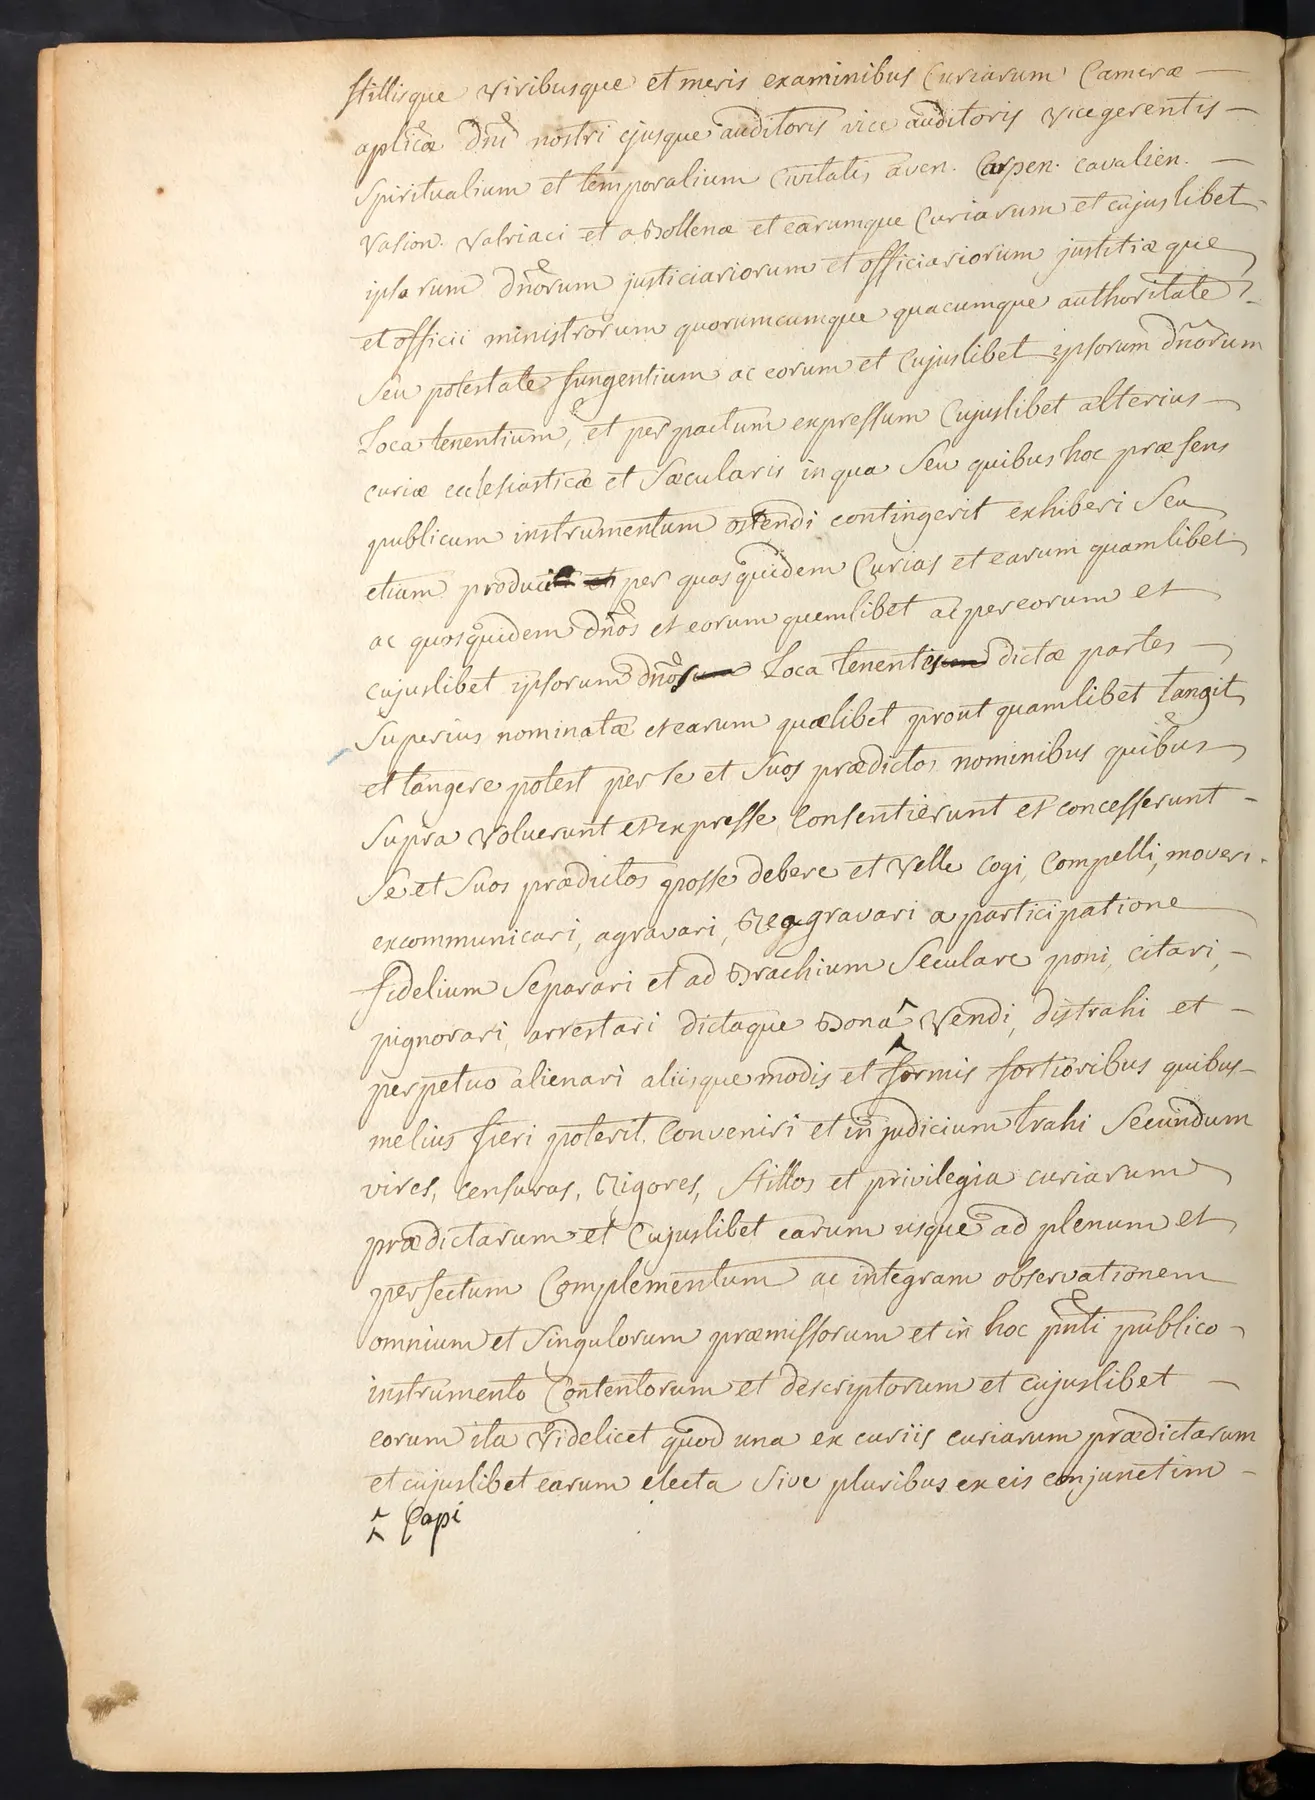 stillisque viribusque et meris examinibus Curiarum Cameræ —
aplicæ dni nostri ejusque auditoris vice auditoris vicegerentis —
spiritualium et temporalium Civitatis aven. Carpen. cavalien. —
vasion. valriaci et abollenæ et earumque Curiarum et cujuslibet
ipsarum dnorum justiciariorum et officiariorum justitiæque
et officii ministrorum quorumcumque quacumque authoritate
seu potestate fungentium ac eorum et Cujuslibet ipsorum dnorum
Loca tenentium, et per pactum expressum Cujuslibet alterius —
curiæ ecclesiasticæ et sæcularis in qua seu quibus hoc præsens
publicum instrumentum ostendi contingerit exhiberi seu
etiam produci per quas quidem Curias et earum quamlibet
ac quos quidem dnos et eorum quemlibet ac per eorum et
cujuslibet ipsorum dnos Loca tenentes dictæ partes —
superius nominatæ et earum quælibet prout quamlibet tangit
et tangere potest per se et suos prædictos nominibus quibus —
supra voluerunt et expresse Consentierunt et concesserunt —
se et suos prædictos posse debere et velle cogi, Compelli, moveri
excommunicari, agravari, Reagravari a participatione
fidelium separari et ad Brachium seculare poni, citari, —
pignorari, arrestari dictaque Bona ^ vendi, distrahi et —
perpetuo alienari aliisque modis et formis fortioribus quibus —
melius fieri poterit. Conveniri et in judicium trahi secundum
vires, Censuras, Rigores, stillos et privilegia curiarum
prædictarum et Cujuslibet earum usque ad plenum et
perfectum Complementum ac integram observationem
omnium et singulorum præmissorum et in hoc pnti publico —
instrumento Contentorum et descriptorum et cujuslibet —
eorum ita videlicet quod una ex curiis curiarum prædictarum
et cujuslibet earum electa sive pluribus ex eis conjunctim —
^ Capi